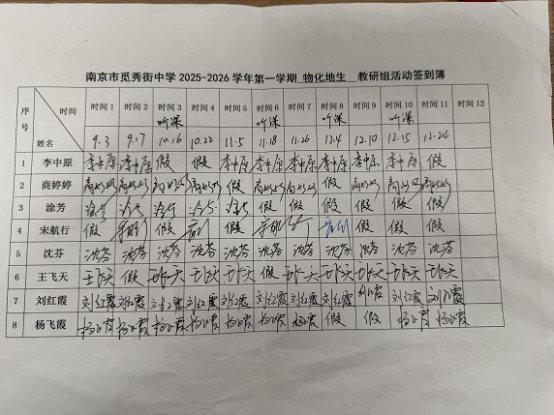 南京市觅秀街中学2025-2026学年第一学期 物化地生 教研组活动签到簿
听课 听课 听课
序号 时间 姓名 时间1 时间2 时间3 时间4 时间5 时间6 时间7 时间8 时间9 时间10 时间11 时间12
9.3 9.17 10.16 10.22 11.5 11.18 11.26 12.4 12.10 12.15 12.24
1 李中原 李中原 李中原 假 假 李中原 李中原 李中原 李中原 李中原 李中原 假
2 商婷婷 商婷婷 商婷婷 商婷婷 商婷婷 假 商婷婷 商婷婷 假 商婷婷 商婷婷 商婷婷
3 涂芳 涂芳 涂芳 涂芳 涂芳 涂芳 假 假 假 假 假 假
4 宋航行 假 假 假 假 假 假
5 沈芬 沈芬 沈芬 沈芬 沈芬 沈芬 沈芬 沈芬 沈芬 沈芬 沈芬 沈芬
6 王飞天 王飞天 假 王飞天 王飞天 王飞天 假 王飞天 王飞天 王飞天 王飞天 王飞天
7 刘红霞 刘红霞 刘红霞 刘红霞 刘红霞 刘红霞 刘红霞 刘红霞 刘红霞 刘红霞 刘红霞 刘红霞
8 杨飞霞 杨飞霞 杨飞霞 杨飞霞 杨飞霞 杨飞霞 杨飞霞 杨飞霞 假 假 杨飞霞 杨飞霞